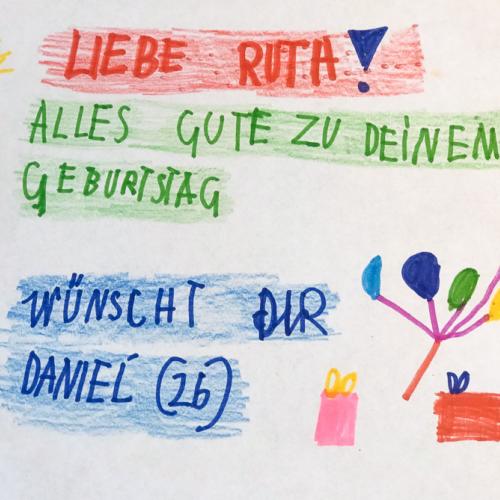 LIEBE RUTH!
ALLES GUTE ZU DEINEM
GEBURTSTAG
WÜNSCHT DIR
DANIEL (26)